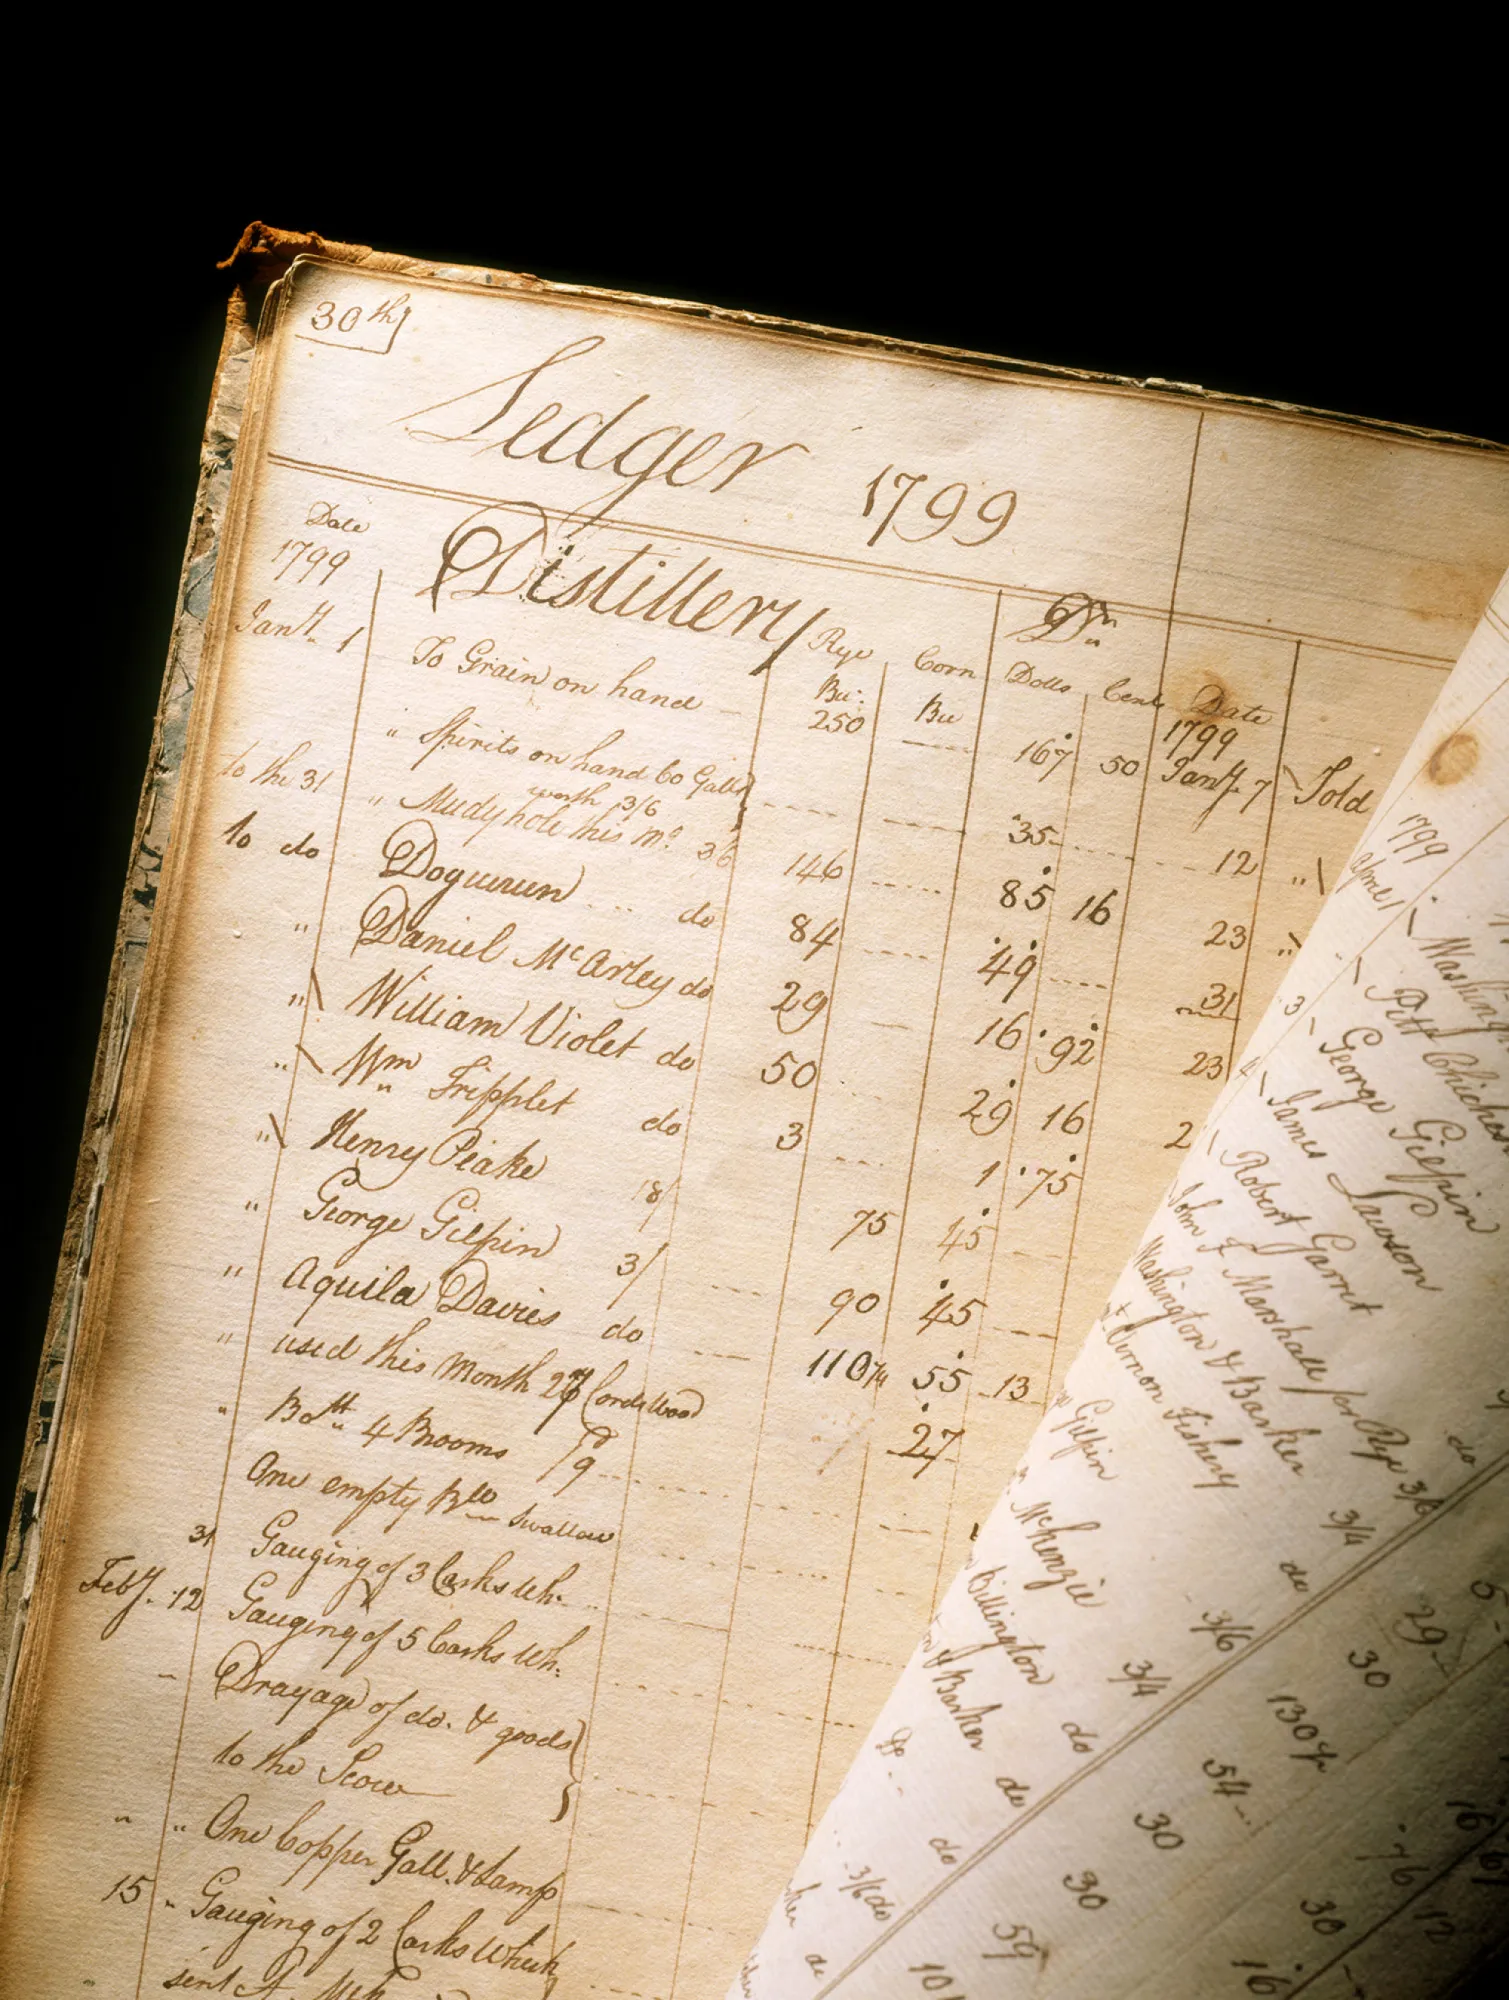 30th
Ledger 1799
Date
1799
Distillery Dr
Rye Corn Dolls Cents Date
Bu: Bu 1799
Jany 1 To Grain on hand 250 167 50 Jany. 7 Sold
" Spirits on hand 60 Galls
worth 3/6 35 12 "
to the 31 " Mudyhole this Mo. 3/6 146 85 16 23 "
to do Doguerun do 84 49 31
" Daniel McCarley do 29 16 92 23
" William Violet do 50 29 16 2
" Wm Tripplet do 3 1 75
" Henry Peake 18/ 75 45
" George Gilpin 3/ 90 45
" Aquila Davies do 110 55 13
" used this Month 27 Cords Wood 27
" Bott 4 Brooms 9
One empty Bll Swallow
31 Gauging of 3 Casks Wh.
Feby. 12 Gauging of 5 Casks Wh:
Drayage of do. & goods
to the Scow
" " One Copper Gall. & Lamp
15 " Gauging of 2 Casks Which
sent A.
1799
April 1
Washing
Pitt Chiches
3 George Gilpin
4 James Lawson
Robert Garret
John F Marshall for Rye 3/6 do
Washington & Barker 3/4
Vernon Fishery do
Gilpin 5
McKenzie 3/6 29
Billington 3/4 30
& Barker do 130
Do do 54 16
do 30 76
3/6 do 30 12
do 59 30
10 16